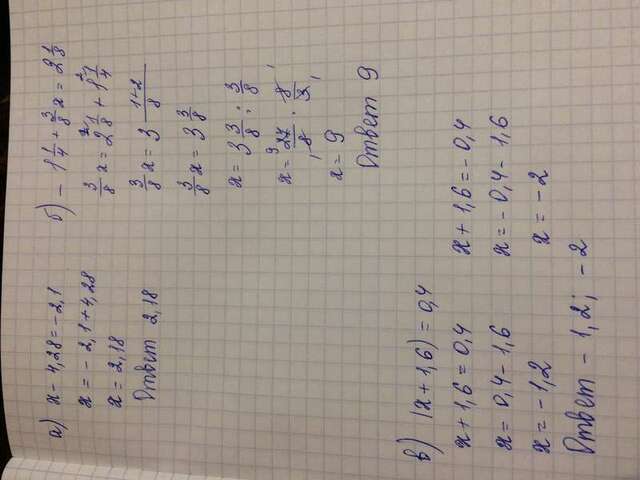 а) x - 4,28 = -2,1
x = - 2,1 + 4,28
x = 2,18
Ответ 2,18
б) - 1 1/4 + 3/8 x = 2 1/8
3/8 x = 2 1/8 + 1 1/4
3/8 x = 3 (1+2)/8
3/8 x = 3 3/8
x = 3 3/8 : 3/8
x = 27/8 · 8/3
x = 9
Ответ 9
в) |x + 1,6| = 0,4
x + 1,6 = 0,4 x + 1,6 = - 0,4
x = 0,4 - 1,6 x = - 0,4 - 1,6
x = - 1,2 x = - 2
Ответ - 1,2; - 2